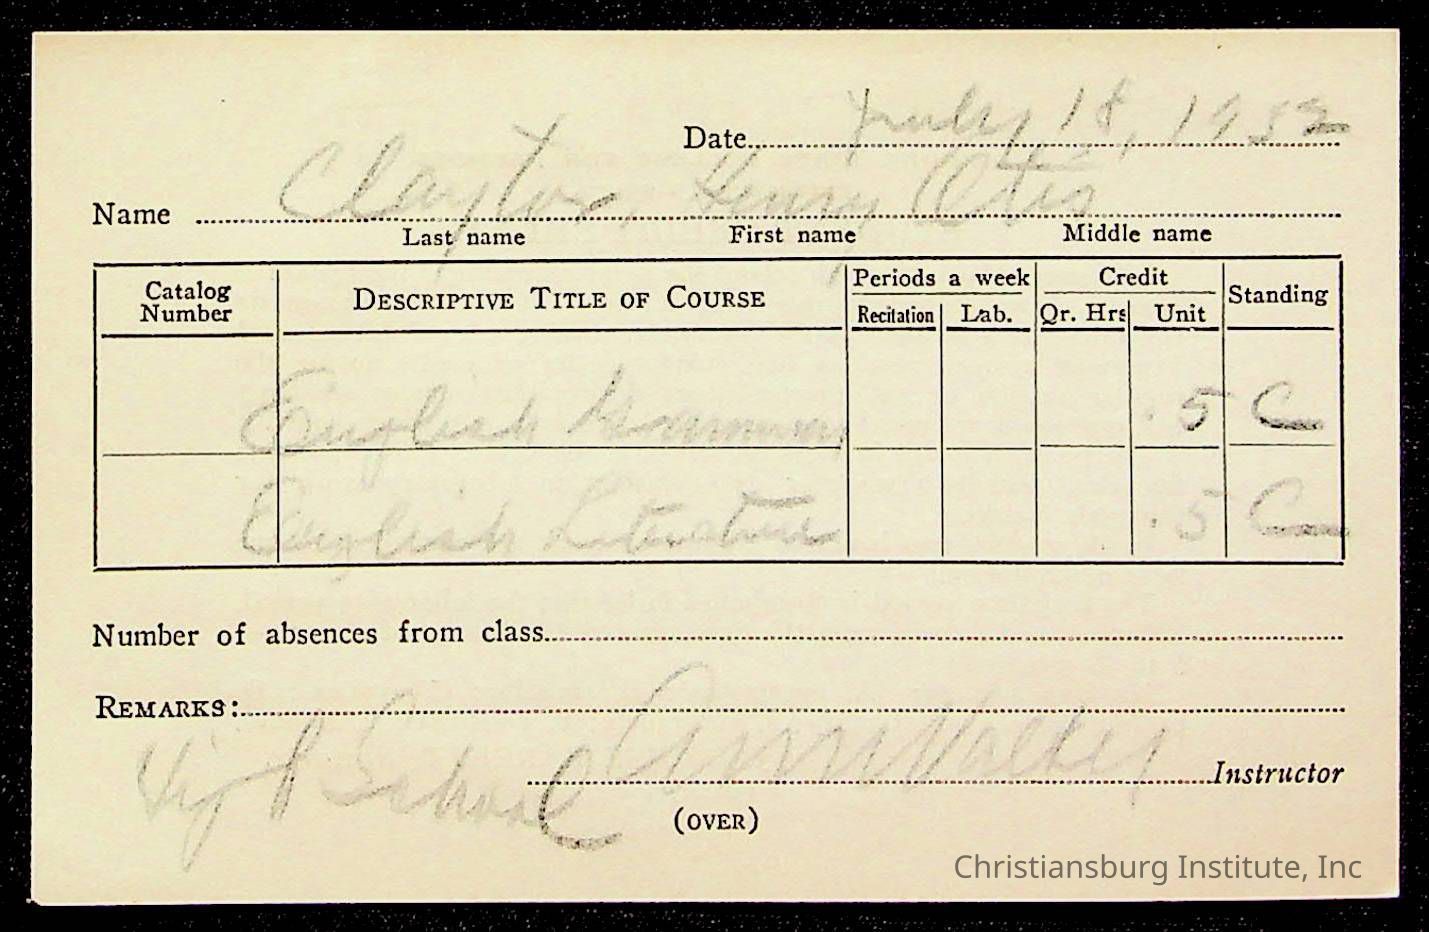 Date July 18, 1952
Name Claytor, Henry Otis
Last name First name Middle name
Catalog Number DESCRIPTIVE TITLE OF COURSE Periods a week Credit Standing
Recitation Lab. Qr. Hrs Unit
English Grammar .5 C
English Literature .5 C
Number of absences from class
REMARKS:
High School Walker Instructor
(OVER)
Christiansburg Institute, Inc